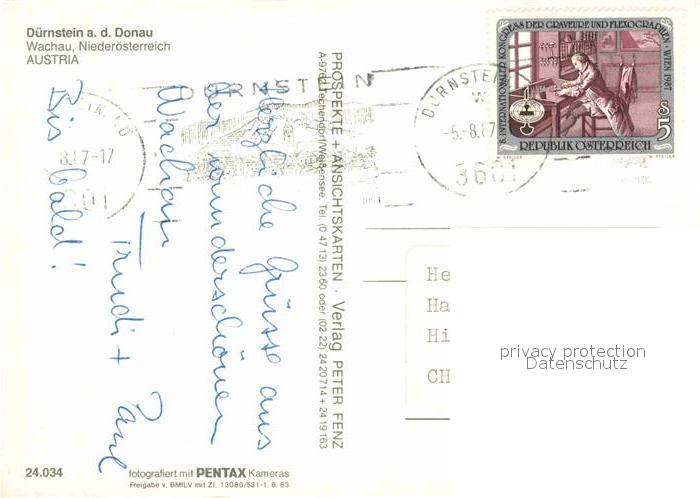 Dürnstein a. d. Donau
Wachau, Niederösterreich
AUSTRIA
Herzliche Grüsse aus
der wunderschönen
Wachau
Trudi + Paul
Bis bald!
PROSPEKTE + ANSICHTSKARTEN · Verlag PETER FENZ
A-9762 Techendorf/Weißensee, Tel. (0 47 13) 23 60 oder (02 22) 24 20 714 + 24 19 163
8. INTERNATIONALER KONGRESS DER GRAVEURE UND FLEXOGRAPHEN · WIEN 1987
S 5
REPUBLIK ÖSTERREICH
DÜRNSTEIN
-5.-8.87
3601
He
Ha
Hi
CH
privacy protection
Datenschutz
24.034
fotografiert mit PENTAX Kameras
Freigabe v. BMfLV mit Zl. 13080/531-1. 6. 83